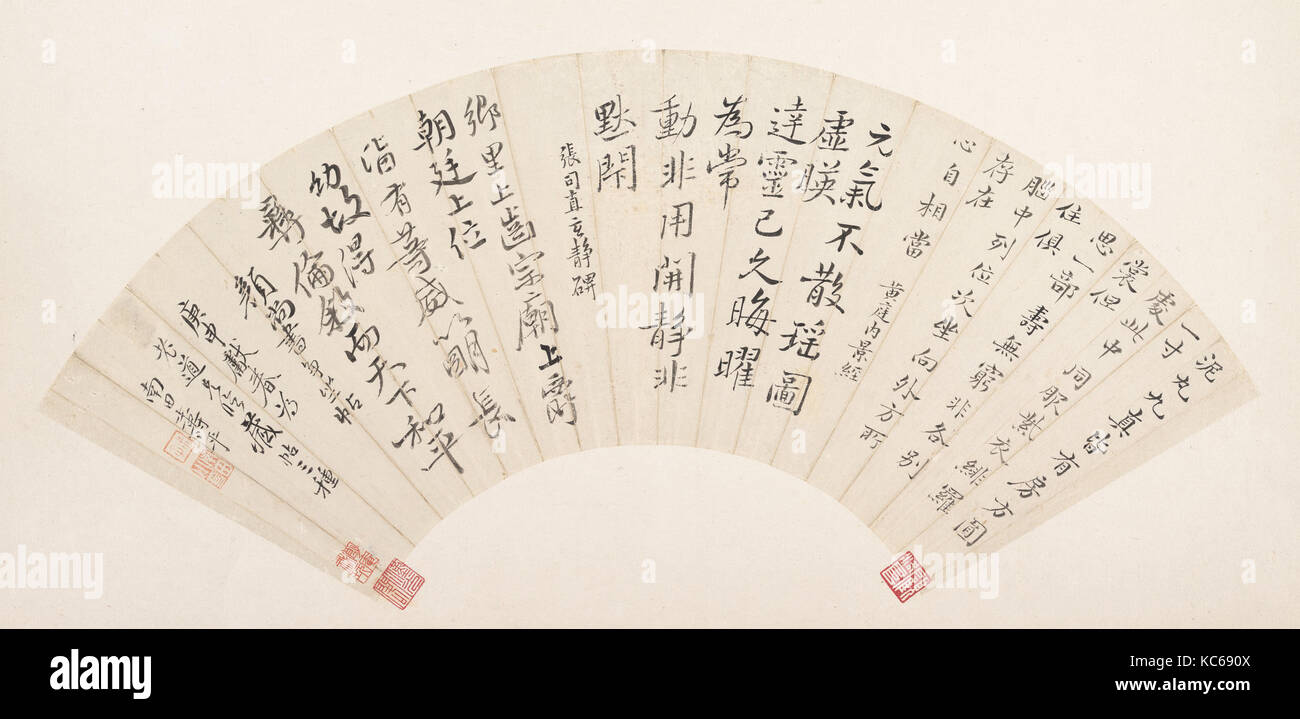 泥丸九真皆有房方圓
一寸處此中同服紫衣緋羅
裳但思一部壽無窮非各別
住俱腦中列位次坐向外方所
存在心自相當
黃庭內景經
元氣不散瑶圖
虛暎
達靈已久晦曜
為常
動非用開靜非
默閇
張司直玄静碑
鄉里上齒宗廟上爵
朝廷上位
皆有等威以明長
幼故得
彝倫敘而天下和平
顏尚書爭坐帖
庚申獻春為
道兄臨藏帖三種
南田壽平
alamy
alamy stock photo
KC690X
www.alamy.com